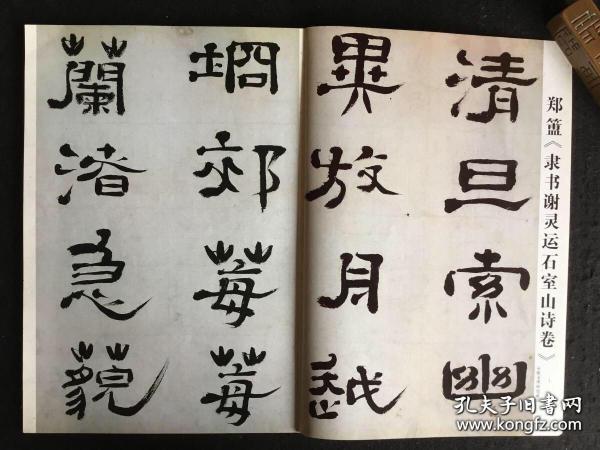 郑簠《隶书谢灵运石室山诗卷》
清旦索幽
異放舟越
坰郊莓莓
蘭渚急藐
孔夫子旧书网
www.kongfz.com